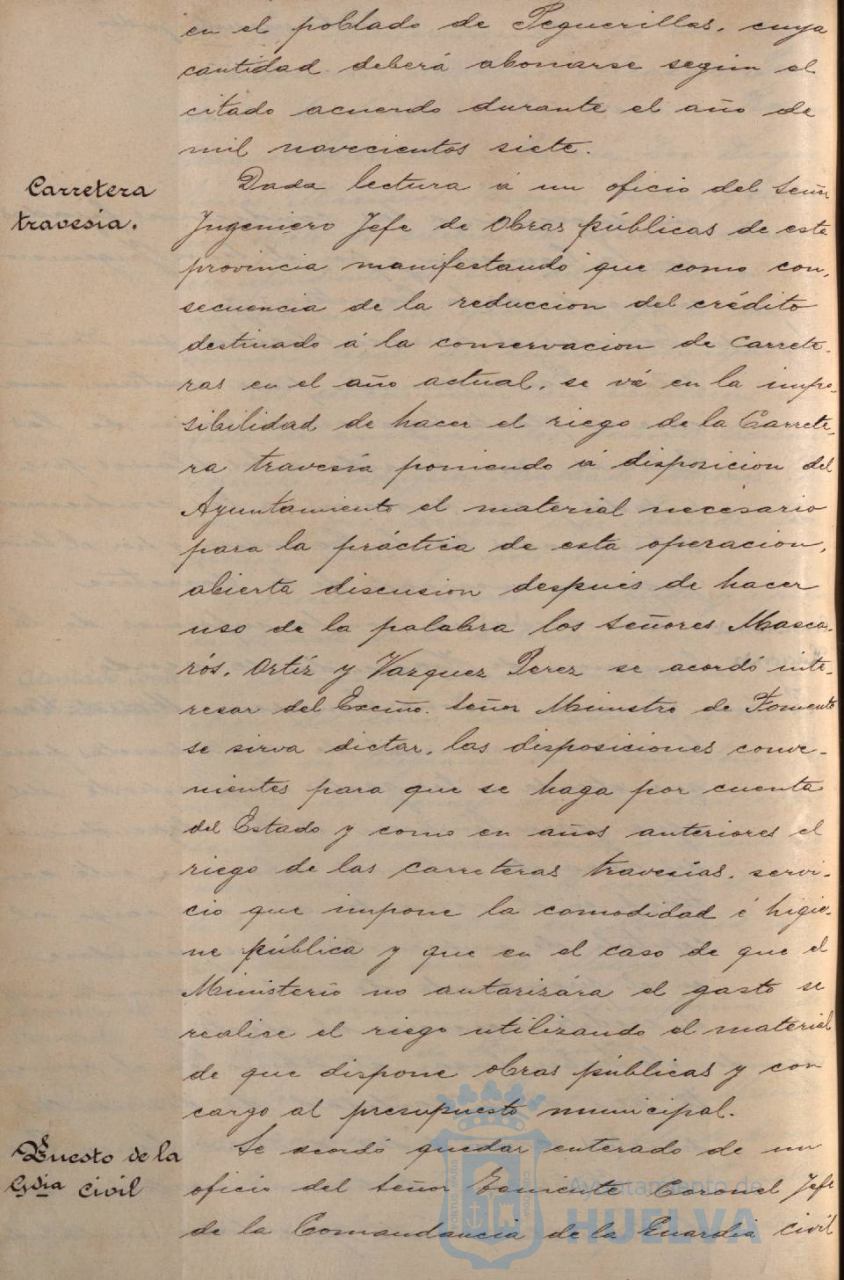 en el poblado de Peguerillas, cuya
cantidad deberá abonarse según el
citado acuerdo durante el año de
mil novecientos siete.
Carretera
travesía.
Dada lectura á un oficio del Señor
Ingeniero Jefe de Obras públicas de esta
provincia manifestando que como con-
secuencia de la reduccion del crédito
destinado á la conservacion de Carrete-
ras en el año actual, se vé en la impo-
sibilidad de hacer el riego de la Carrete-
ra travesía poniendo á disposicion del
Ayuntamiento el material necesario
para la práctica de esta operacion,
abierta discusion despues de hacer
uso de la palabra los señores Masca-
rós, Ortíz y Vazquez Perez se acordó inte-
resar del Excmo. Señor Ministro de Fomento
se sirva dictar, las disposiciones conve-
nientes para que se haga por cuenta
del Estado y como en años anteriores el
riego de las carreteras travesías, servi-
cio que impone la comodidad é higie-
ne pública y que en el caso de que el
Ministerio no autorizára el gasto se
realice el riego utilizando el material
de que dispone obras públicas y con
cargo al presupuesto municipal.
Puesto de la
Gdia Civil
Se acordó quedar enterado de un
oficio del Señor Teniente Coronel Jefe
de la Comandancia de la Guardia Civil
Ayuntamiento de
HUELVA